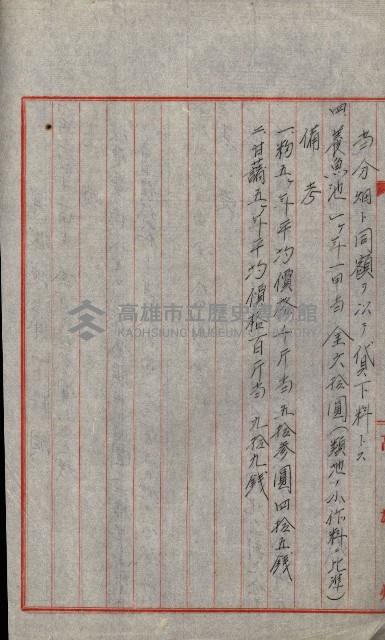 当分畑ト同額ヲ以テ貸下料トス
四 養魚池一ヶ年一甲当金六拾圓(類地ノ小作料ニ比準)
備考
一、籾五ヶ年平均價格千斤当五拾参圓四拾五銭
二、甘藷五ヶ年平均價格百斤当九拾九銭
高雄市立歷史博物館
KAOHSIUNG MUSEUM OF HISTORY
高雄州